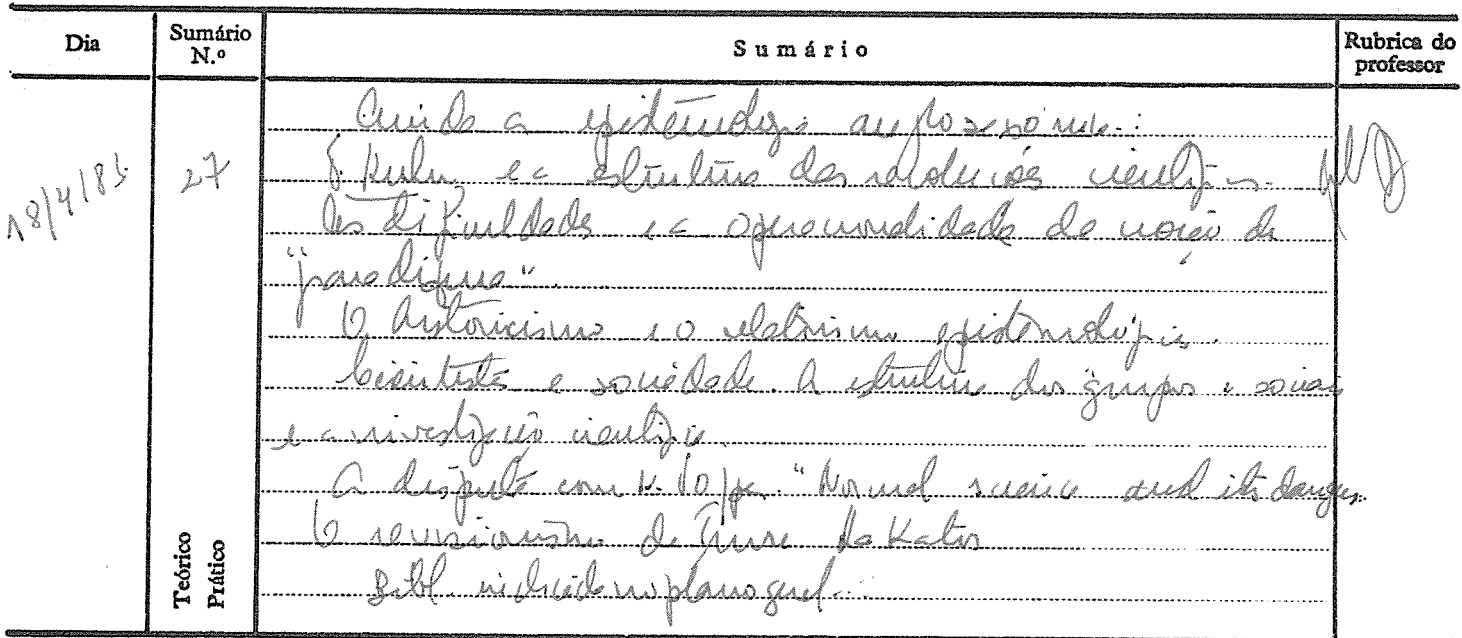 Dia
Sumário N.º
Sumário
Rubrica do professor
Ainda a epistemologia anglo-saxónica:
Kuhn, e a estrutura das revoluções científicas.
18/4/85
27
As dificuldades e a operacionalidade da noção de
"paradigma".
O historicismo e o relativismo epistemológico.
Cientista e sociedade. A estrutura dos grupos e sociais
e a investigação científica.
A disputa com K. Popper. "Normal science and its dangers
O revisionismo de Imre Lakatos
Bibl. indicada no plano geral.
Teórico
Prático